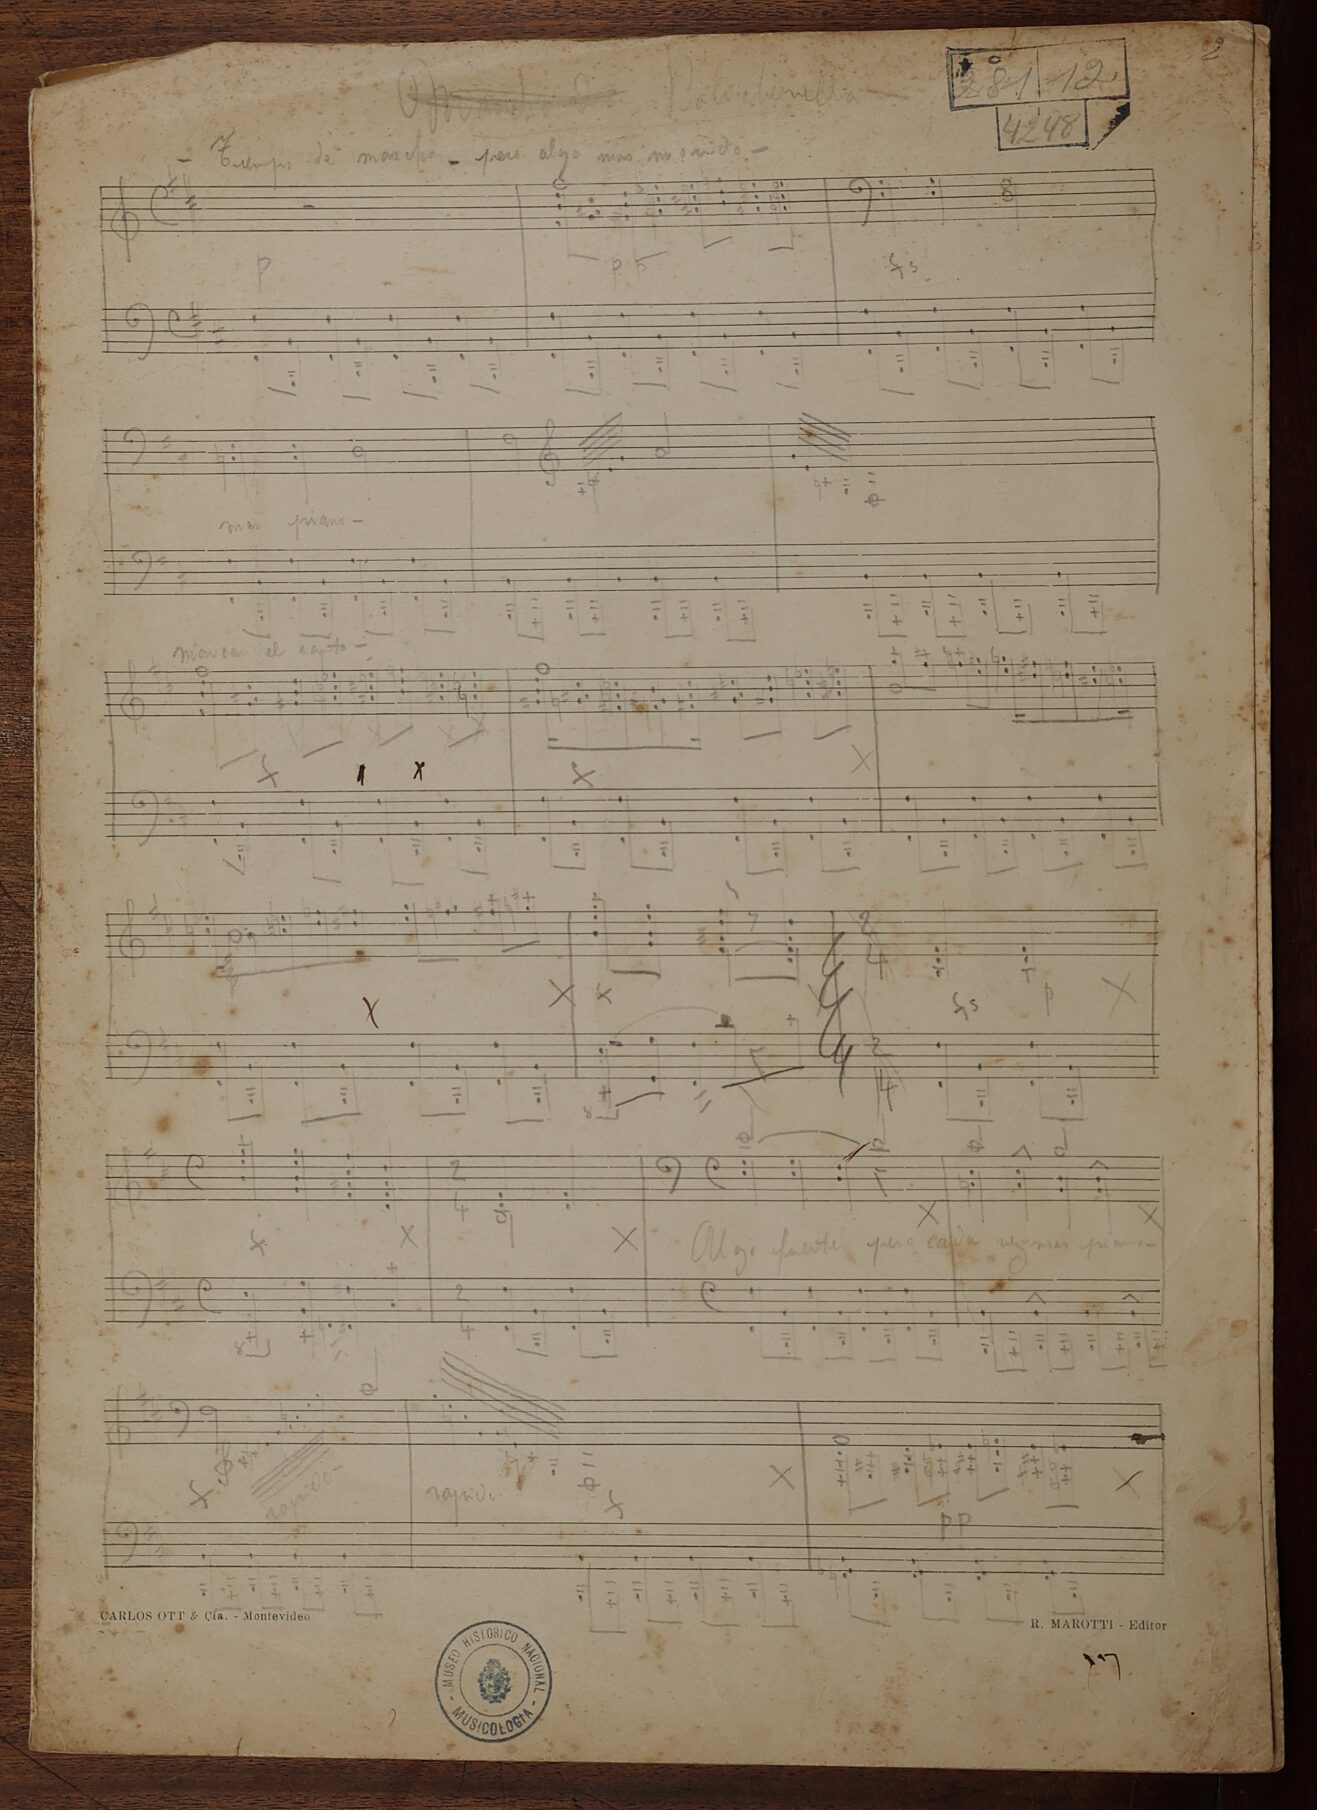 2
281 12
4248
Polichinella
- Tiempo de marcha - pero algo mas movido -
p
pp
fs
mas piano -
marcar el canto -
f
f
2
4
f
fs
p
4
2
4
2
4
f
Algo fuerte pero cada vez mas piano -
2
4
f
rapido -
rapido
f
pp
CARLOS OTT & Cía. - Montevideo
R. MAROTTI - Editor
MUSEO HISTORICO NACIONAL
- MUSICOLOGIA -